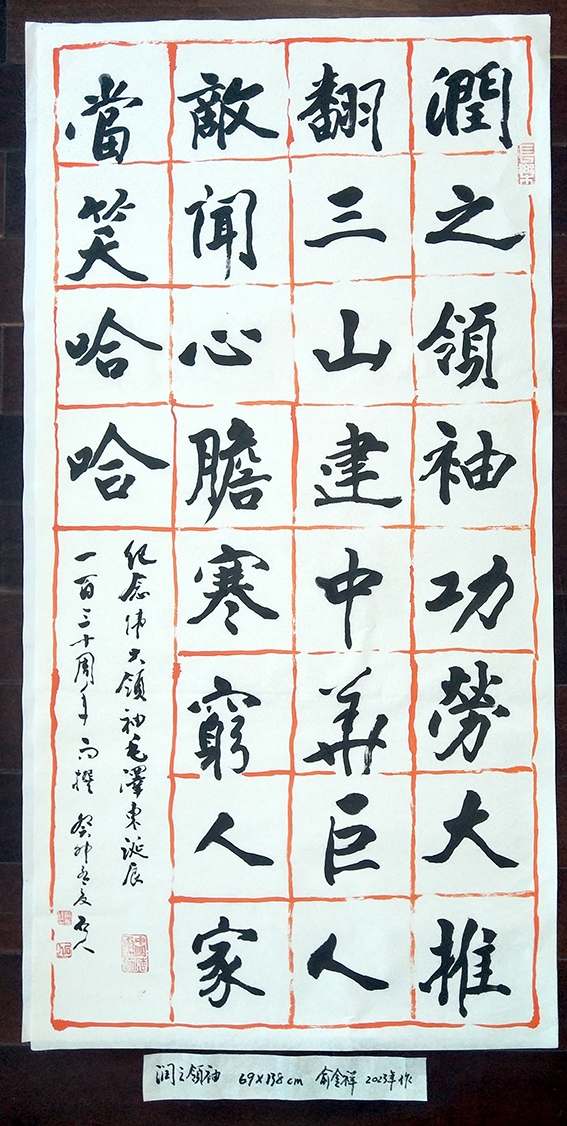 潤之領袖功勞大推
翻三山建中華巨人
敵聞心膽寒窮人家
當笑哈哈
纪念伟大領袖毛澤東誕辰
一百三十周年而撰 癸卯年夏 石人
润之領袖 69×138cm 俞金祥 2023年作